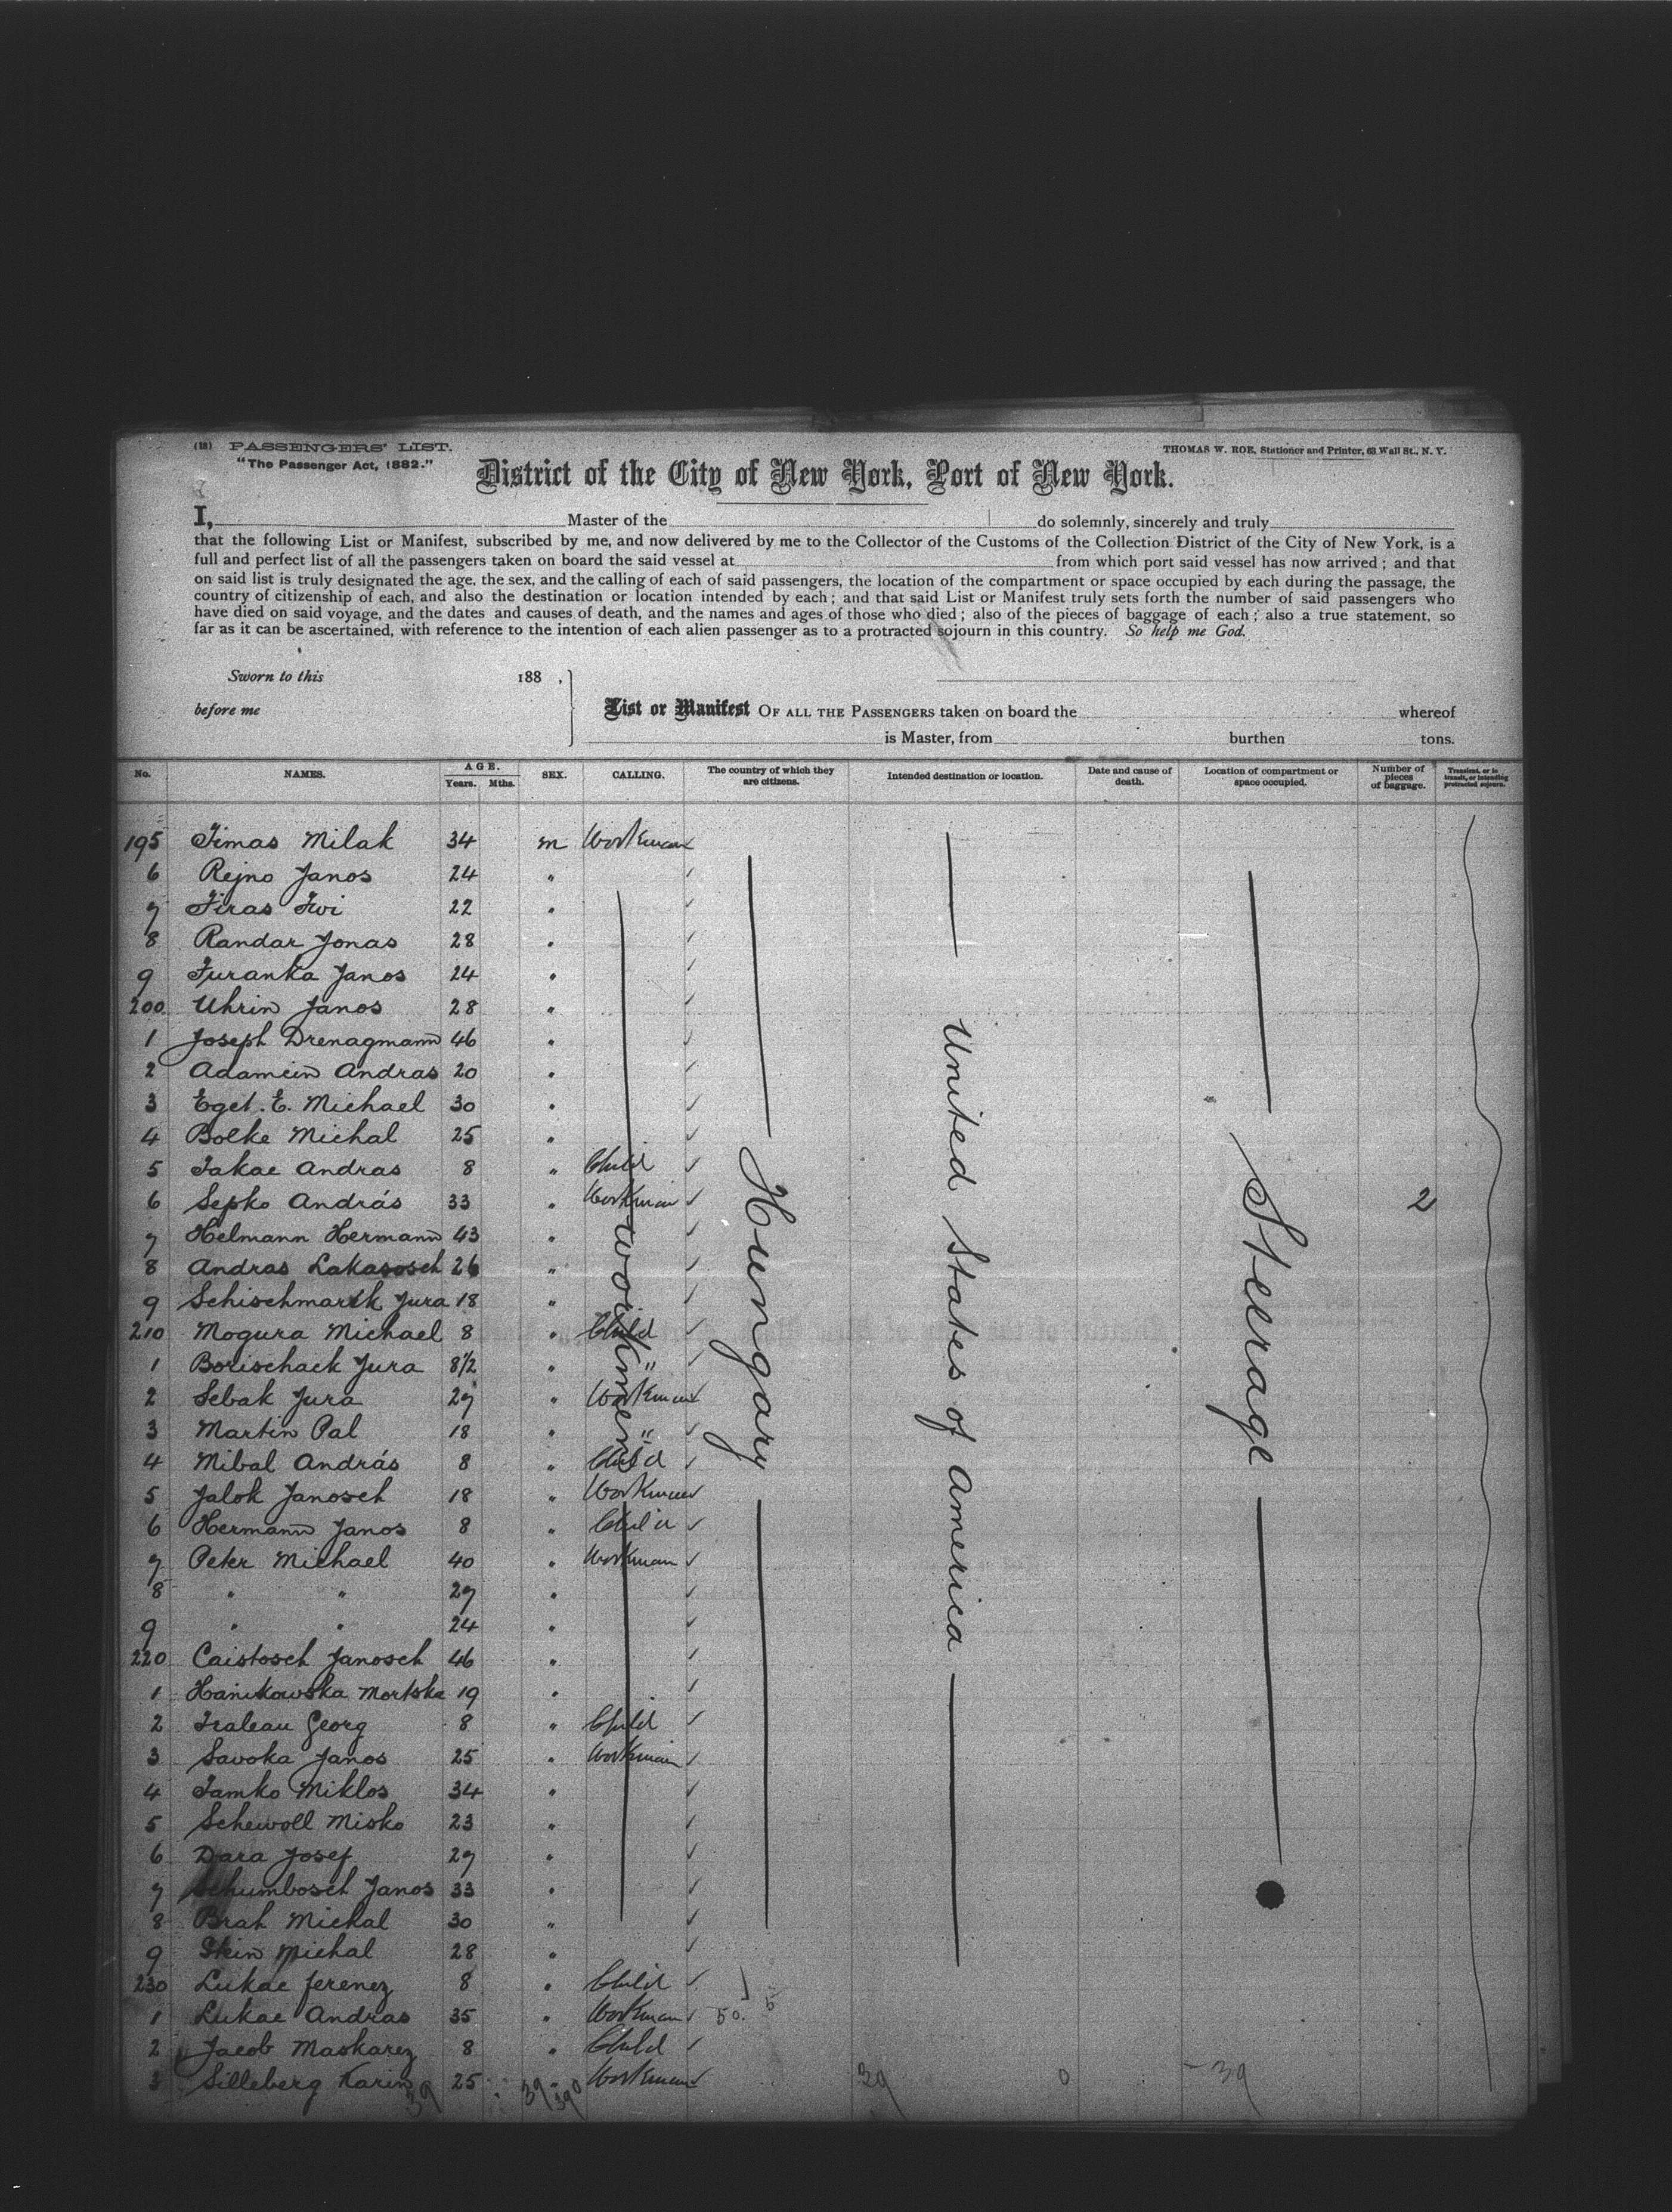 (18) PASSENGERS' LIST.
"The Passenger Act, 1882."
THOMAS W. ROE, Stationer and Printer, 63 Wall St., N. Y.
District of the City of New York, Port of New York.
I, Master of the do solemnly, sincerely and truly
that the following List or Manifest, subscribed by me, and now delivered by me to the Collector of the Customs of the Collection District of the City of New York, is a
full and perfect list of all the passengers taken on board the said vessel at from which port said vessel has now arrived; and that
on said list is truly designated the age, the sex, and the calling of each of said passengers, the location of the compartment or space occupied by each during the passage, the
country of citizenship of each, and also the destination or location intended by each; and that said List or Manifest truly sets forth the number of said passengers who
have died on said voyage, and the dates and causes of death, and the names and ages of those who died; also of the pieces of baggage of each; also a true statement, so
far as it can be ascertained, with reference to the intention of each alien passenger as to a protracted sojourn in this country. So help me God.
Sworn to this 188 ,
before me
List or Manifest OF ALL THE PASSENGERS taken on board the whereof
is Master, from burthen tons.
No. NAMES. AGE. Years. Mths. SEX. CALLING. The country of which they are citizens. Intended destination or location. Date and cause of death. Location of compartment or space occupied. Number of pieces of baggage. Transient, or in transit, or intending protracted sojourn.
195 Timas Milak 34 m Workman
6 Rejno Janos 24 "
7 Firas Iwi 22 "
8 Randar Jonas 28 "
9 Furanka Janos 24 "
200 Uhrin Janos 28 "
1 Joseph Drenagmann 46 "
2 Adamcin Andras 20 "
3 Eget. E. Michael 30 "
4 Bolke Michal 25 "
5 Takac Andras 8 " Child
6 Sepko András 33 " Workman 2
7 Helmann Hermann 43 "
8 Andras Lakasosch 26 "
9 Schischmarik Jura 18 "
210 Mogura Michael 8 " Child
1 Borischack Jura 8 1/2 " "
2 Sebak Jura 27 " Workman
3 Martin Pal 18 " "
4 Mibal András 8 " Child
5 Jalok Janosch 18 " Workman
6 Hermann Janos 8 " Child
7 Peter Michael 40 " Workman
8 " " 27 "
9 " " 24 "
220 Caistosch Janosch 46 "
1 Hanikowska Mortska 19 "
2 Traleau Georg 8 " Child
3 Savoka Janos 25 " Workman
4 Tamko Miklos 34 "
5 Schewoll Misko 23 "
6 Dara Josef 27 "
7 Schumbosch Janos 33 "
8 Brah Michal 30 "
9 Stein Michal 28 "
230 Lukac ferenez 8 " Child
1 Lukac Andras 35 " Workman 50. 5
2 Jacob Maskarez 8 " Child
3 Silleberg Karin 25 " Workman
workmen
Hungary
United States of America
Steerage
39 39 390 39 0 39